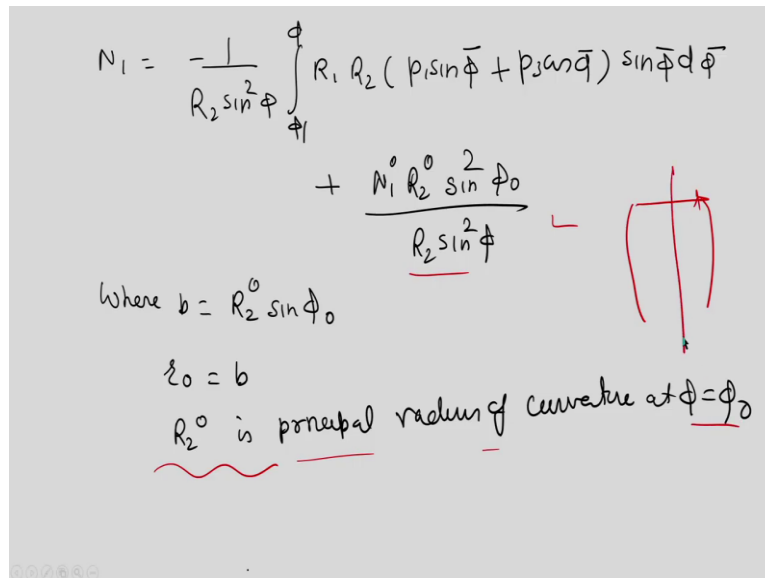 N₁ = -1/(R₂ sin²ϕ) ∫_{ϕ1}^{ϕ} R₁ R₂ (p₁ sin ϕ̄ + p₃ cos ϕ̄) sin ϕ̄ d ϕ̄
+ N₁⁰ R₂⁰ sin² ϕ₀ / (R₂ sin² ϕ)
Where b = R₂⁰ sin ϕ₀
r₀ = b
R₂⁰ is principal radius of curvature at ϕ = ϕ₀